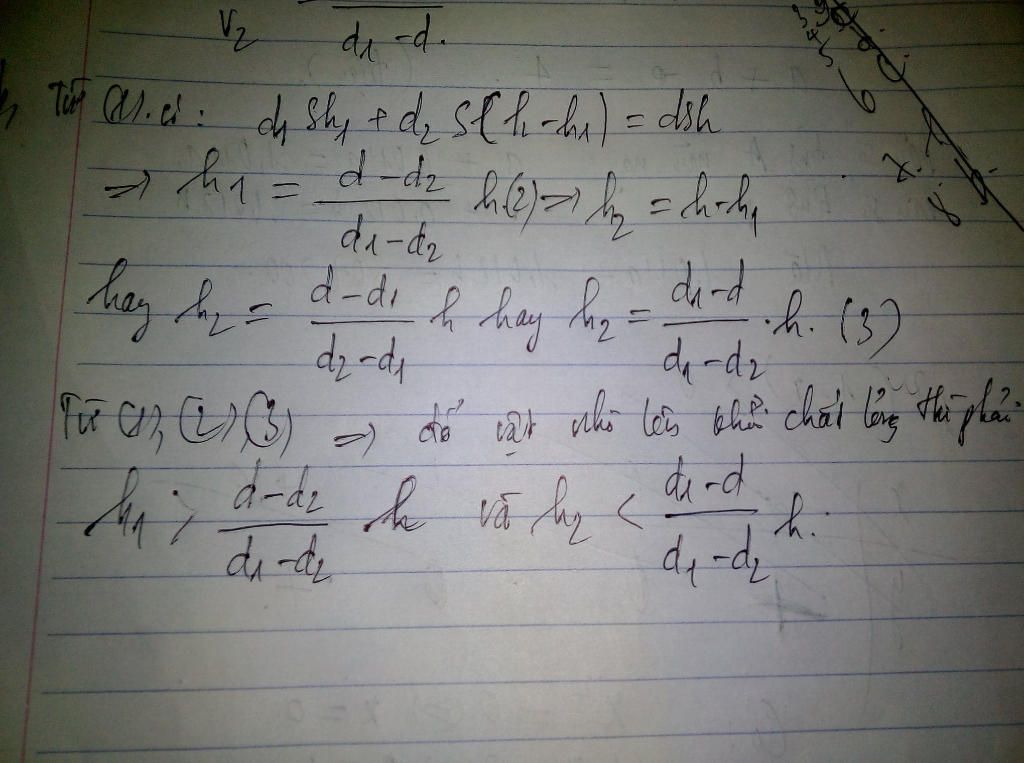 V2 / (d1 - d).
Từ (1). có: d1 Sh1 + d2 S(h - h1) = dSh
=> h1 = (d - d2) / (d1 - d2) h (2) => h2 = h - h1
hay h2 = (d - d1) / (d2 - d1) h hay h2 = (d1 - d) / (d1 - d2) . h. (3)
Từ (1), (2), (3) => để vật nhô lên khỏi chất lỏng thì phải
h1 > (d - d2) / (d1 - d2) h và h2 < (d1 - d) / (d1 - d2) h.